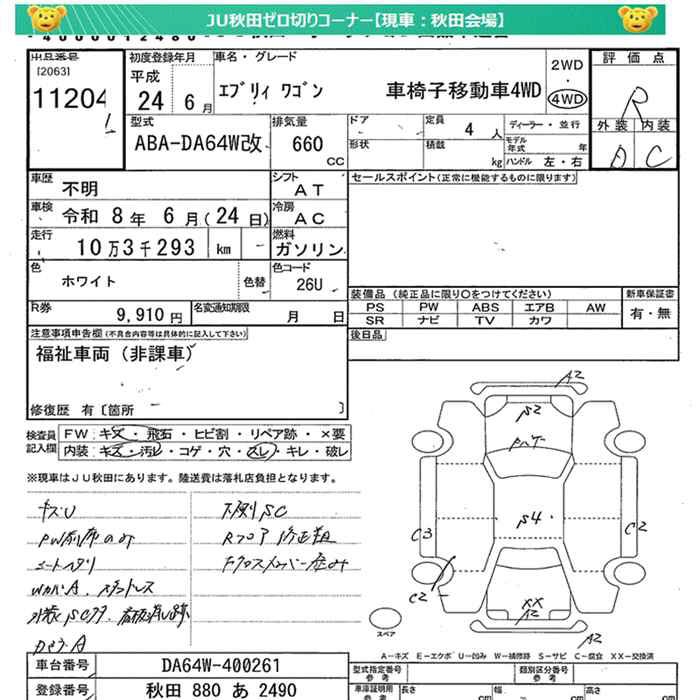 JU秋田ゼロ切りコーナー【現車：秋田会場】
出品番号
[2063]
11204
初度登録年月
平成
24 6月
車名・グレード
エブリィ ワゴン 車椅子移動車4WD
2WD
・
4WD
評価点
R
外装 内装
A C
型式
ABA-DA64W改
排気量
660
CC
ドア
形状
定員 4 人
積載 kg
ディーラー・並行
モデル年式 年
ハンドル 左・右
車歴 不明
シフト AT
セールスポイント(正常に機能するものに限ります)
車検 令和 8年 6月(24日)
冷房 AC
走行 10万3千293 km
燃料 ガソリン
色 ホワイト 色替
色コード 26U
R券 9,910円
名変通知期限 月 日
装備品 (純正品に限り○をつけてください)
PS PW ABS エアB AW
SR ナビ TV カワ
新車保証書
有・無
後日品
注意事項申告欄(不具合内容等は具体的に記入して下さい)
福祉車両（非課車）
修復歴 有〔箇所 〕
検査員記入欄
FW：キズ・飛石・ヒビ割・リペア跡・×要
内装：キズ・汚レ・コゲ・穴・スレ・キレ・破レ
※現車はJU秋田にあります。陸送費は落札店負担となります。
キズU
下廻りSC
A2
S2
S4
C3
C2
C2
XX
A2
A2
スペア
A－キズ E－エクボ U－凹み W－補修跡 S－サビ C－腐食 XX－交換済
車台番号 DA64W-400261
登録番号 秋田 880 あ 2490
型式指定番号
参考
類別区分番号
参考
車庫証明用
参考
長さ cm
幅 cm
高さ